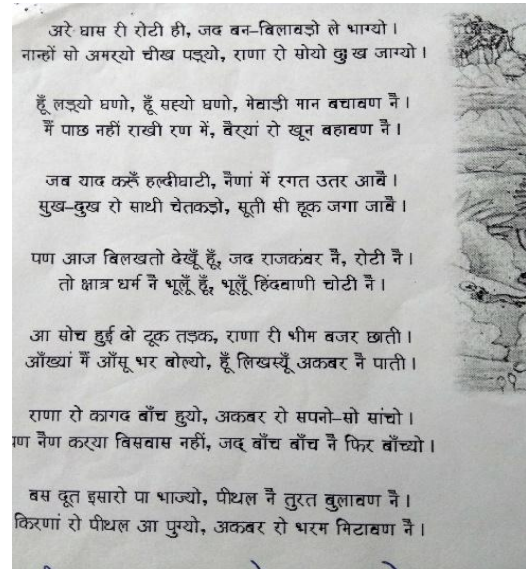 अरे घास री रोटी ही, जद बन–बिलावड़ो ले भाग्यो ।
नान्हों सो अमरयो चीख पड्यो, राणा रो सोयो दुःख जाग्यो ।
हूँ लड्यो घणो, हूँ सह्यो घणो, मेवाड़ी मान बचावण नै ।
मैं पाछ नहीं राखी रण में, वैरयां रो खून बहावण नै ।
जब याद करूँ हल्दीघाटी, नैणां में रगत उतर आवै ।
सुख–दुख रो साथी चेतकड़ो, सूती सी हूक जगा जावै ।
पण आज बिलखतो देखूँ हूँ, जद राजकंवर नै, रोटी नै ।
तो क्षात्र धर्म नै भूलूँ हूँ, भूलूँ हिंदवाणी चोटी नै ।
आ सोच हुई दो टूक तड़क, राणा री भीम बजर छाती ।
आँख्यां मैं आँसू भर बोल्यो, हूँ लिखस्यूँ अकबर नै पाती ।
राणा रो कागद बाँच हुयो, अकबर रो सपनो–सो सांचो ।
पण नैण करया बिसवास नहीं, जद् बाँच बाँच नै फिर बाँच्यो ।
बस दूत इसारो पा भाज्यो, पीथल नै तुरत बुलावण नै ।
किरणां रो पीथल आ पुग्यो, अकबर रो भरम मिटावण नै ।